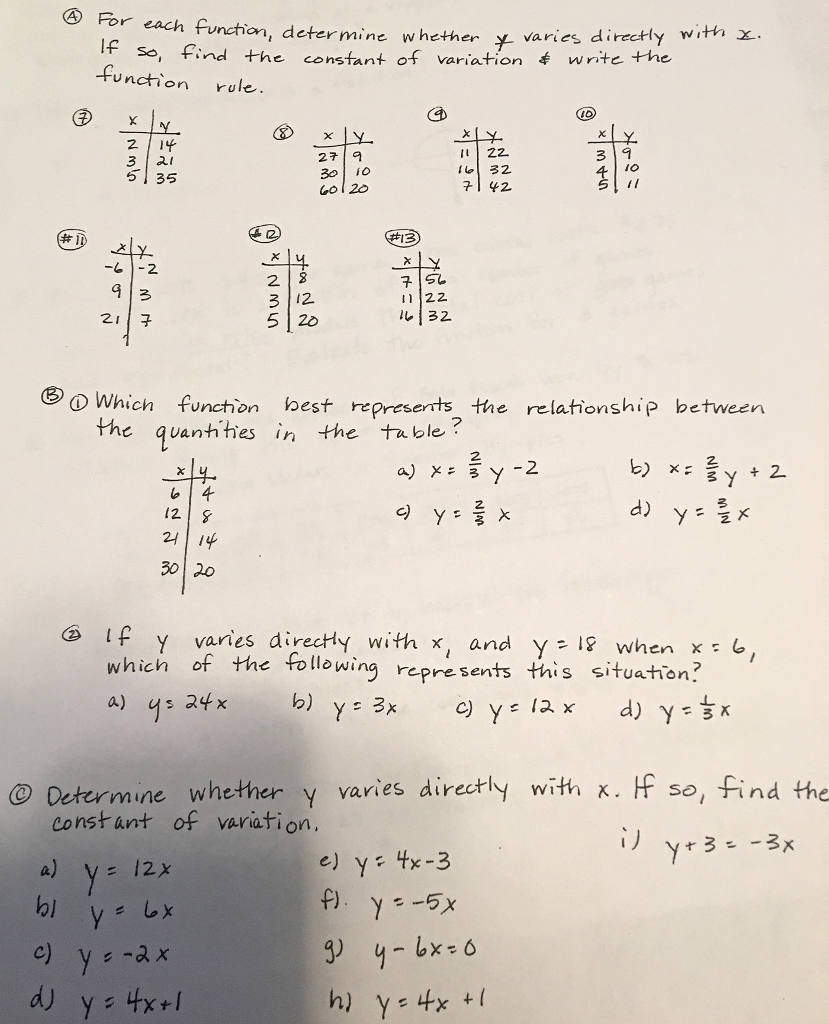 Ⓐ For each function, determine whether y varies directly with x.
If so, find the constant of variation & write the
function rule.
⑦ ⑧ ⑨ ⑩
x | y   x | y   x | y   x | y
2 | 14   27 | 9   11 | 22   3 | 9
3 | 21   30 | 10   16 | 32   4 | 10
5 | 35   60 | 20   7 | 42   5 | 11
#11 #12 #13
x | y   x | y   x | y
-6 | -2   2 | 8   7 | 56
9 | 3   3 | 12   11 | 22
21 | 7   5 | 20   16 | 32
Ⓑ ① Which function best represents the relationship between
the quantities in the table?
x | y   a) x = 2/3 y - 2   b) x = 2/3 y + 2
6 | 4
12 | 8   c) y = 2/3 x   d) y = 3/2 x
21 | 14
30 | 20
② If y varies directly with x, and y = 18 when x = 6,
which of the following represents this situation?
a) y = 24x   b) y = 3x   c) y = 12x   d) y = 1/3 x
Ⓒ Determine whether y varies directly with x. If so, find the
constant of variation.
a) y = 12x   e) y = 4x-3   i) y+3 = -3x
b) y = 6x   f). y = -5x
c) y = -2x   g) y - 6x = 0
d) y = 4x+1   h) y = 4x +1